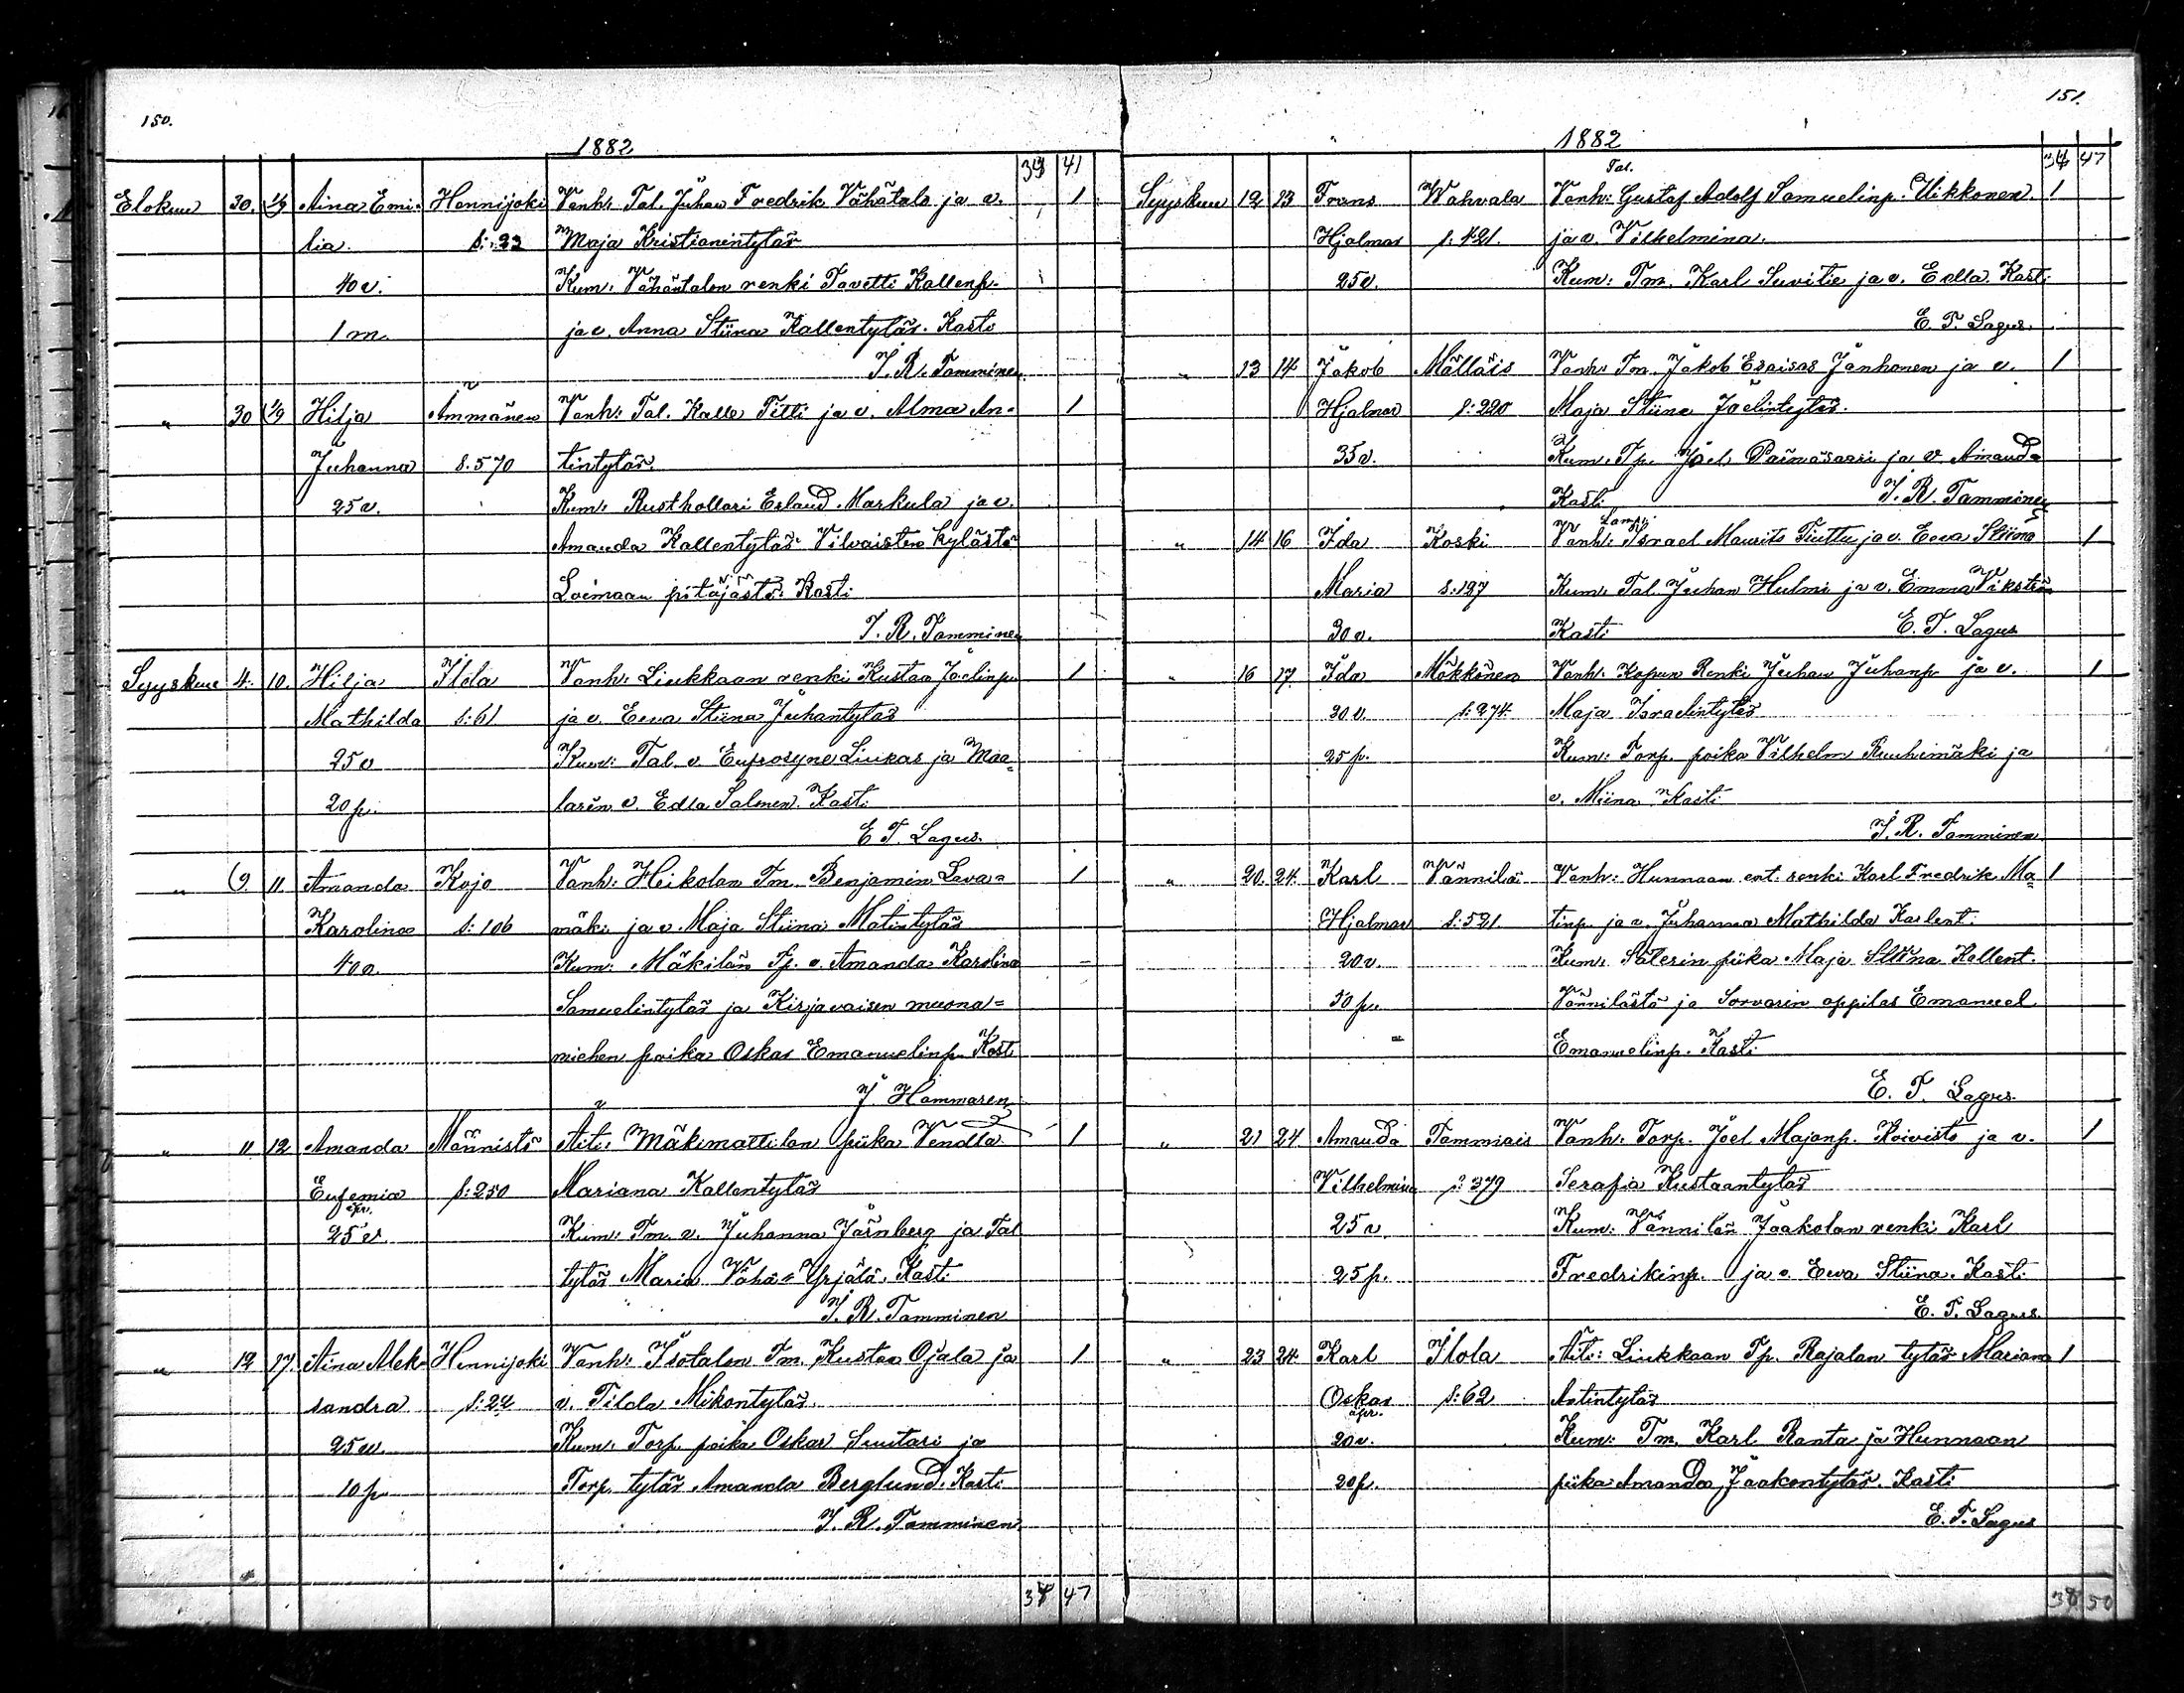 150.
1882
34 41
Elokuu 30. 1/9 Aina Emi- Hennijoki Vanh: Tal. Juhan Fredrik Vähätalo ja v. 1
lia. s: 23 Maja Kristianintytär
40 v. Kum: Vähäntalon renki Tavetti Kallenp.
1 m. ja v. Anna Stiina Kallentytär. Kasti
J. R. Tamminen
" 30 1/9 Hilja Ammänen Vanh: Tal. Kalle Titti ja v. Alma An- 1
Juhanna s. 570 tintytär.
25 v. Kum: Rusthollari Erland Markula ja v.
Amanda Kallentytär Vilvaisten kylästä
Loimaan pitäjästä. Kasti
J. R. Tamminen
Syyskuu 4. 10. Hilja Ilola Vanh: Liukkaan renki Kustaa Joelinp. 1
Mathilda s: 61 ja v. Eeva Stiina Juhantytär
25 v Kum: Tal. v. Eufrosyne Liukas ja Maa-
20 p. larin v. Edla Salmen. Kasti
E. T. Lagus.
" 9 11 Amanda Kojo Vanh: Heikolan Tm. Benjamin Lava= 1
Karolina s: 106 mäki ja v. Maja Stiina Matintytär
40 v. Kum: Mäkilän Tp. v. Amanda Karolina
Samuelintytär ja Kirjavaisen muona=
miehen poika Oskar Emanuelinp. Kasti
J. Hammaren
" 11 12 Amanda Männistö Äiti: Mäkimattilan piika Vendla 1
Eufemia s: 250 Mariana Kallentytär
äpr.
25 v. Kum: Tm. v. Juhanna Järnberg ja Tal.
tytär Maria Vähä=Yrjälä. Kasti
J. R. Tamminen
" 12 17. Aina Alek- Hennijoki Vanh: Isotalon Tm. Kustaa Ojala ja 1
sandra s: 24 v. Tilda Mikontytär.
25 v. Kum: Torp. poika Oskar Suutari ja
10 p Torp. tytär Amanda Berglund. Kasti
J. R. Tamminen
47
151.
1882
34 47
Tal.
Syyskuu 12 13 Frans Wahvala Vanh: Gustaf Adolf Samuelinp. Uikkonen. 1
Hjalmar s: 421. ja v. Vilhelmina.
25 v. Kum: Tm. Karl Suvitie ja v. Edla. Kasti
E. T. Lagus.
" 13 14 Jakob Mälläis Vanh: Tm. Jakob Esaias Janhonen ja v. 1
Hjalmar s: 220 Maja Stiina Joelintytär.
35 v. Kum. Tp. Joel Painosaari ja v. Amanda
Kasti J. R. Tamminen
Lamp.
" 14 16 Ida Koski Vanh: Israel Maurits Tiuttu ja v. Eeva Stiina 1
Maria s: 197 Kum: Tal. Juhan Hulmi ja v. Emma Vikström
30 v. Kasti E. T. Lagus
" 16 17. Ida Mökkönen Vanh: Kopun Renki Juhan Juhanp. ja v. 1
30 v. s: 274. Maja Israelintytär
25 p. Kum: Torp. poika Vilhelm Ruuhimäki ja
v. Miina. Kasti
J. R. Tamminen
" 20. 24. Karl Vännilä Vanh: Hunnaan ent. renki Karl Fredrik Ma= 1
Hjalmar s: 521. tinp. ja v. Juhanna Mathilda Karlent.
20 v. Kum: Säterin piika Maja Stiina Kallent.
50 p. Vännilästä ja Sorvarin oppilas Emanuel
Emanuelinp. Kasti
E. T. Lagus.
" 21 24 Amanda Tammiais Vanh: Torp. Joel Majanp. Koivisto ja v. 1
Vilhelmina s: 379 Serafia Kustaantytär
25 v. Kum: Vännilän Jaakolan renki Karl
25 p. Fredrikinp. ja v. Eeva Stiina. Kasti
E. T. Lagus.
" 23 24. Karl Ilola Äiti: Liukkaan Tp. Rajalan tytär Mariana 1
Oskar s: 62 Antintytär
äpr.
20 v. Kum: Tm. Karl Ranta ja Hunnaan
20 p. piika Amanda Jaakontytär. Kasti
E. T. Lagus
50